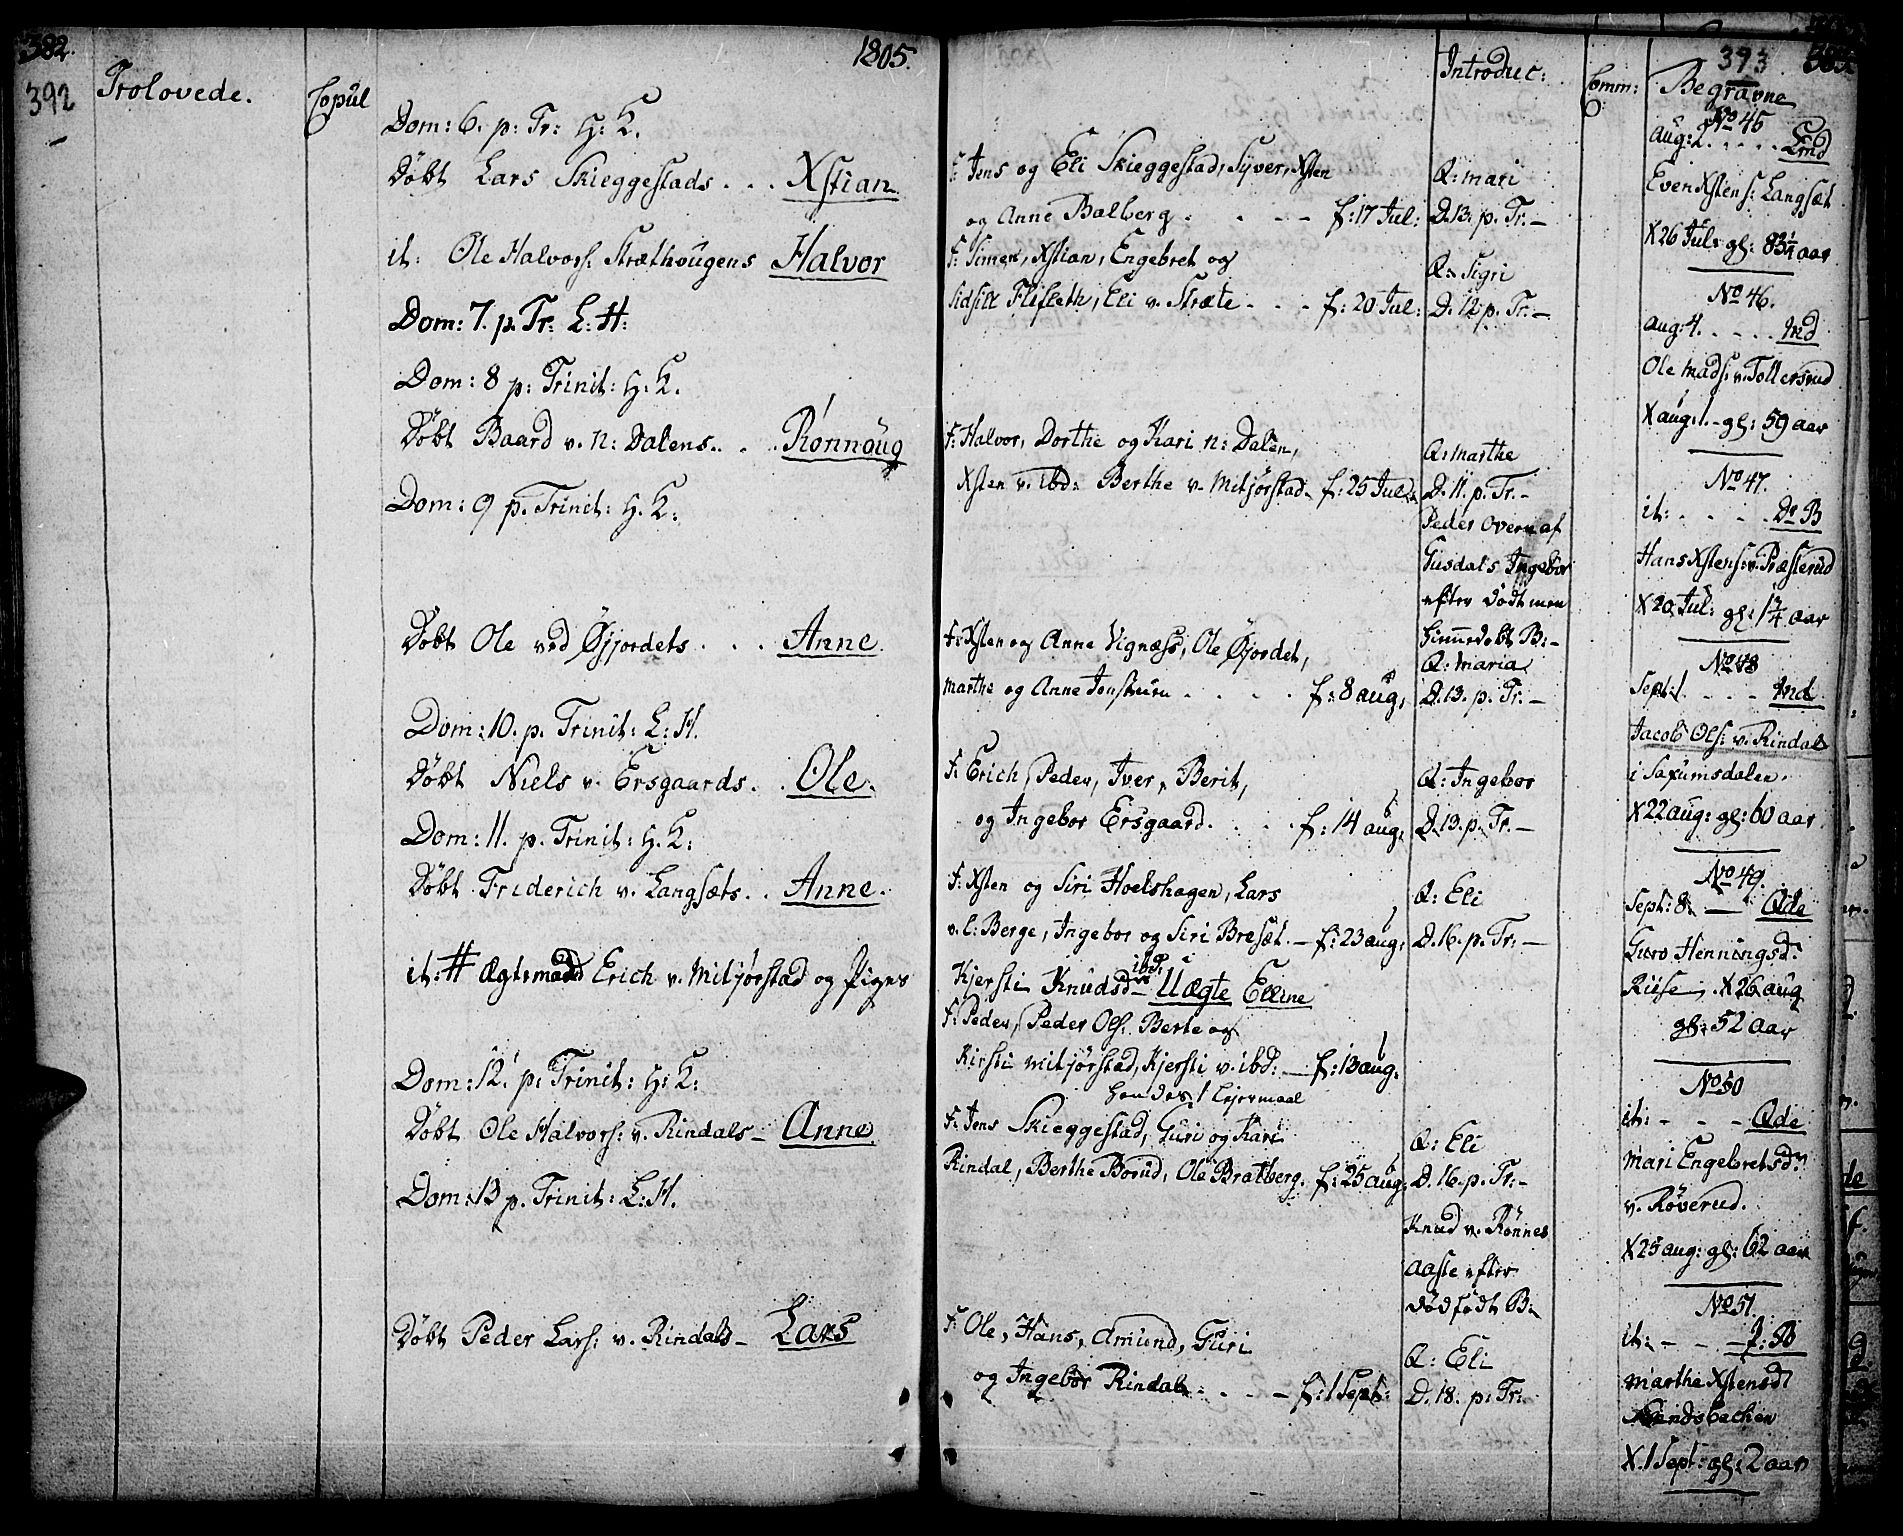 382.
392
Trolovede.
Copul
1805.
Dom: 6. p: Tr: H: K.
Døbt Lars Skieggestads . . . Xstian
it: Ole Halvors: Stræthougens Halvor
Dom: 7. p. Tr: L: H:
Dom: 8 p: Trinit: H: K.
Døbt Baard v. n: Dalens . . . Rønnoug
Dom: 9 p. Trinit: H. K:
Døbt Ole ved Øjjordets . . . Anne.
Dom: 10. p. Trinit: L: H.
Døbt Niels v. Ersgaards. . Ole.
Dom: 11. p. Trinit: H. K:
Døbt Friderich v. Langsæts . . Anne.
it: # Ægtemand Erich v. Mitjørstad og Piges
Dom: 12. p: Trinit: H: K:
Døbt Ole Halvors: v. Rindals – Anne
Dom: 13 p. Trinit: L: H.
Døbt Peder Lars: v. Rindals – Lars
F: Jens og Eli Skieggestad, Syver, Xsten
og Anne Balberg . . . – f: 17 Jul:
F: Simen, Xstian, Engebret og
Sidsill Flifleth, Eli v. Stræte . . . f: 20 Jul:
F: Halvor, Dorthe og Kari n: Dalen,
Xsten v. ibd: Berthe v. Mitjørstad. f: 25 Jul:
F: Xsten og Anne Vignæss, Ole Øjordet,
Marthe og Anne Jonstuen . . . . f: 8 aug:
F: Erich, Peder, Iver, Berit,
og Ingebor Ersgaard. . . . f: 14 aug:
F: Xsten og Siri Hoelshagen, Lars
v. l: Berge, Ingebor og Siri Bresæt. – f: 23 aug:
Kjersti Knudsd: v. ibd: Uægte Elline
F: Peder, Peder Ols: Berte og
Kirsti Mitjørstad, Kjersti v. ibd: – f: 13 aug.
hendes 1 Lejermaal
F: Jens Skieggestad, Guri og Kari
Rindal, Berthe Borud, Ole Bratberg. f: 25 aug:
F: Ole, Hans, Amund, Guri
og Ingebor Rindal . . . – f: 1 Sept:
Introduc:
Q: Mari
D. 13. p. Tr: –
Q: Sigri
D. 12 p. Tr: –
Q: Marthe
D. 11. p. Tr. –
Peder Overn af
Gusdals Ingebor
efter Dødt men
Himedøbt B: –
Q: Maria
D. 13. p. Tr. –
Q: Ingebor
D. 13. p. Tr. –
Q: Eli
D. 16. p. Tr: –
Q: Eli
D. 16. p. Tr: –
Knud v. Rønnes
Aaste efter
dødfødt B:
Q: Eli
D. 18. p: Tr:
Comm:
393
Begravne
No 45
Aug: 2. . . . . Emd
Even Xstens: Langsæt
X 26 Jul: gl: 83¼ aar
No 46.
Aug: 4. . . . Md
Ole Mads: v. Tollersrud
X aug: 1. – gl: 59 aar
No 47.
it: . . . . Dr B
Hans Xstens: v. Præsterud
X 20 Jul: gl: 1¼ aar
No 48
Sept: 1. . . . Md
Jacob Ols: v. Rindal
i Saxumsdalen.
X 22 aug: gl: 60 aar
No 49.
Sept: 8. – Qde
Guro Henningsd:
Riise, X 26 aug
gl: 52 aar
No 50
it: – – – Qde
Mari Engebretsd:
v. Røverud.
X 25 aug: gl: 62 aar
No 51.
it: – – P: B
Marthe Xstensd:
X. 1 Sept: gl: 2 aar